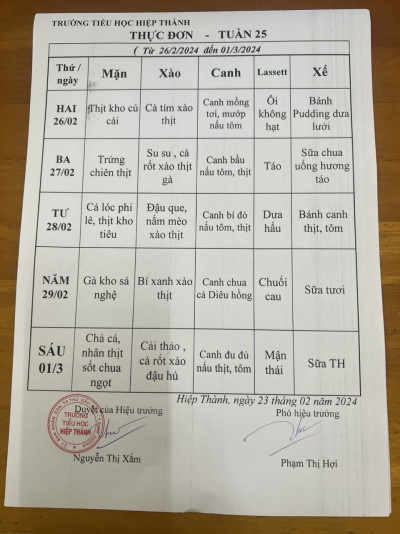 TRƯỜNG TIỂU HỌC HIỆP THÀNH
THỰC ĐƠN - TUẦN 25
( Từ 26/2/2024 đến 01/3/2024
Thứ / ngày Mặn Xào Canh Lassett Xế
HAI 26/02
Thịt kho củ cải
Cà tím xào thịt
Canh mồng tơi, mướp nấu tôm
Ổi không hạt
Bánh Pudding dưa lưới
BA 27/02
Trứng chiên thịt
Su su , cà rốt xào thịt gà
Canh bầu nấu tôm, thịt
Táo
Sữa chua uống hương táo
TƯ 28/02
Cá lóc phi lê, thịt kho tiêu
Đậu que, nấm mèo xào thịt
Canh bí đỏ nấu tôm, thịt
Dưa hấu
Bánh canh thịt, tôm
NĂM 29/02
Gà kho sả nghệ
Bí xanh xào thịt
Canh chua cá Diêu hồng
Chuối cau
Sữa tươi
SÁU 01/3
Chả cá, nhân thịt sốt chua ngọt
Cải thảo , cà rốt xào đậu hủ
Canh đu đủ nấu thịt, tôm
Mận thái
Sữa TH
Hiệp Thành, ngày 23 tháng 02 năm 2024
Duyệt của Hiệu trưởng
Phó hiệu trưởng
TRƯỜNG
TIỂU HỌC
HIỆP THÀNH
Nguyễn Thị Xắm
Phạm Thị Hợi